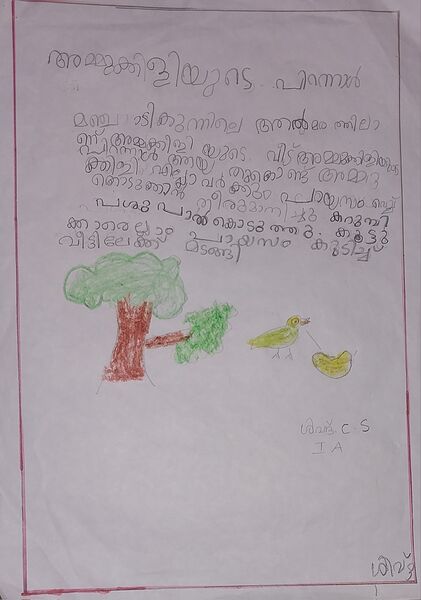 അമ്മുക്കിളിയുടെ പിറന്നാൾ
മഞ്ചാടികുന്നിലെ ആൽമരത്തിലാ
ണ് അമ്മുക്കിളി യുടെ വീട് അമ്മുക്കിളിയുടെ
പിറന്നാൾ ആയ തുകൊണ്ട് അമ്മു
ക്കിളി എല്ലാ വർക്കും പായസം വെച്ച്
കൊടുത്താൻ തീരുമാനിച്ചു കറുമ്പി
പശു പാൽ കൊടുത്തു. കൂട്ടു
ക്കാരെല്ലാം പായസം കുടിച്ച്
വീട്ടിലേക്ക് മടങ്ങി
ശിവദ. C. S
I A